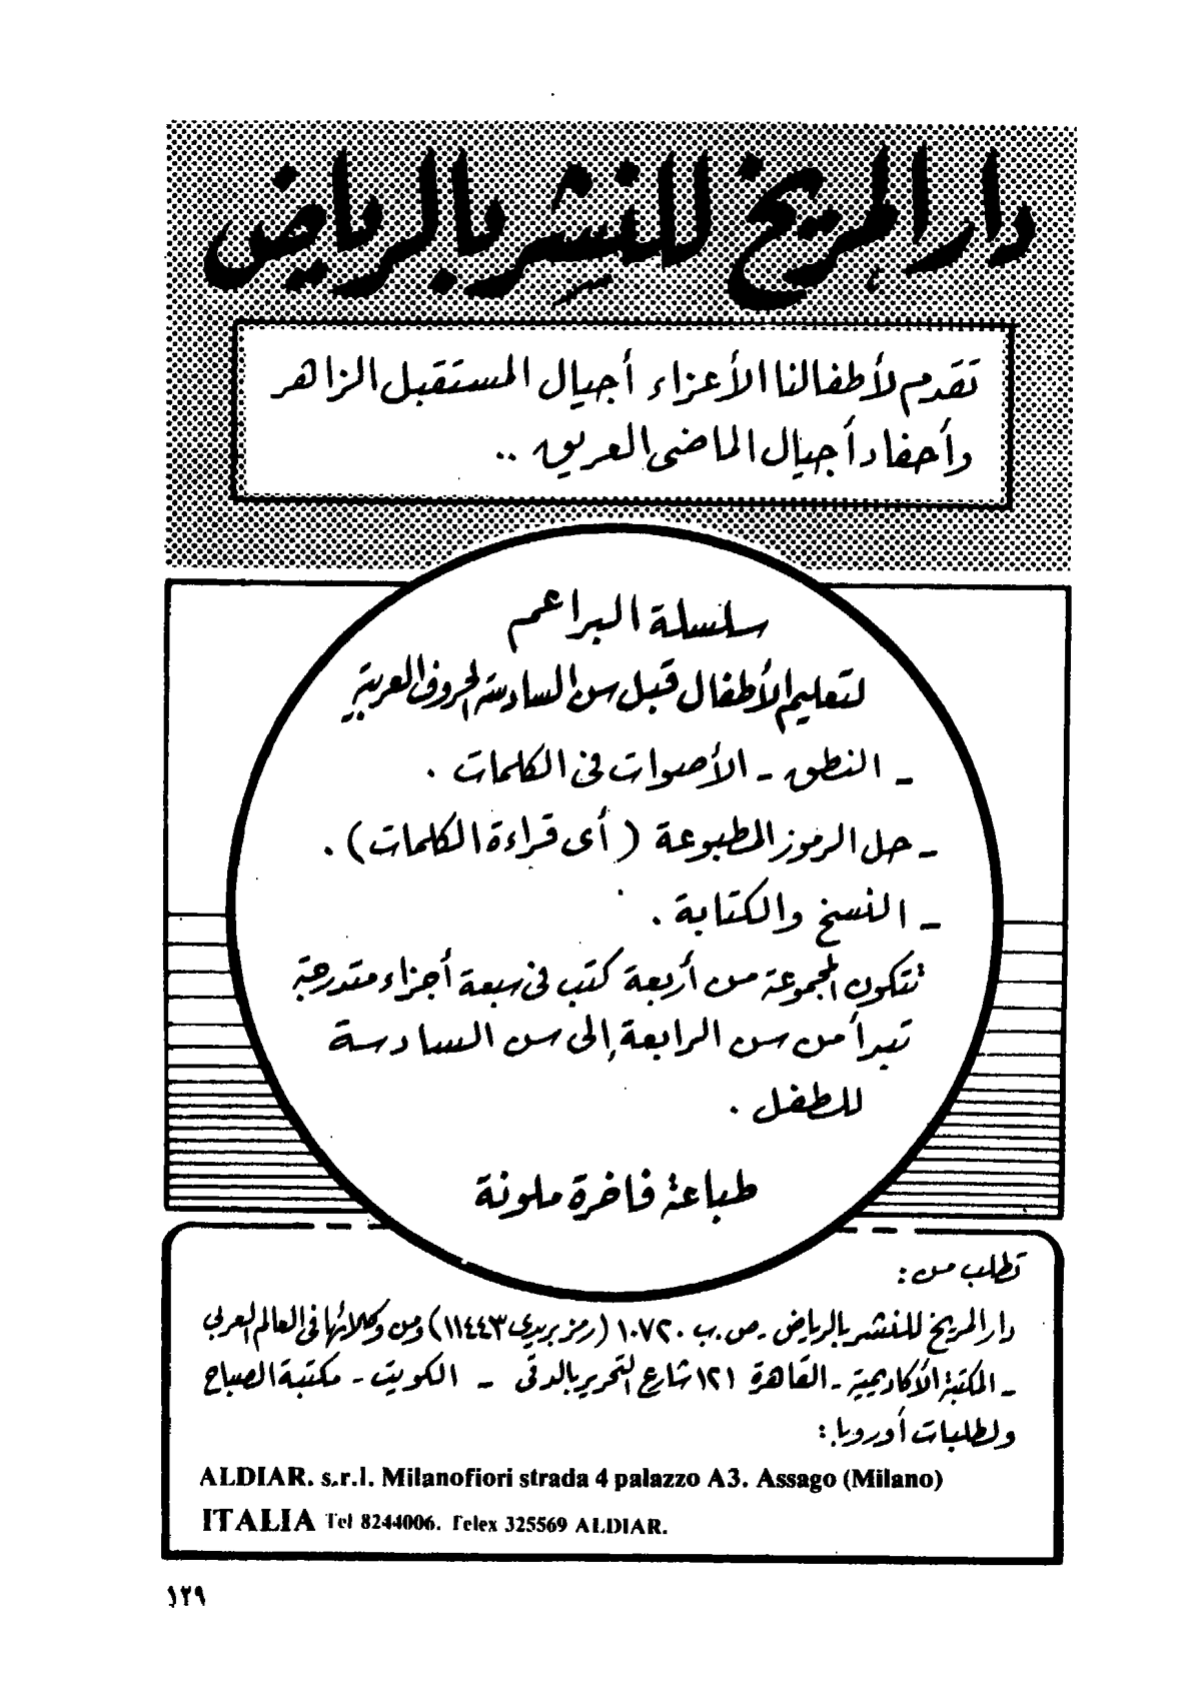 دار المريخ للنشر بالرياض
تقدم لأطفالنا الأعزاء أجيال المستقبل الزاهر
وأحفاد أجيال الماضى العريق ..
سلسلة البراعم
لتعليم الأطفال قبل سن السادسة الحروف العربية
- النطق - الأصوات فى الكلمات .
- حل الرموز المطبوعة ( أى قراءة الكلمات ) .
- النسخ والكتابة .
تتكون المجموعة من أربعة كتب فى سبعة أجزاء متدرجة
تبدأ من سن الرابعة إلى سن السادسة
للطفل .
طباعة فاخرة ملونة
تطلب من :
دار المريخ للنشر بالرياض - ص . ب ١٠٧٢٠ ( رمز بريدى ١١٤٤٣ ) ومن وكلائها فى العالم العربى
- المكتبة الأكاديمية - القاهرة ١٢١ شارع التحرير بالدقى - الكويت - مكتبة الصباح
ولطلبات أوروبا :
ALDIAR. s.r.l. Milanofiori strada 4 palazzo A3. Assago (Milano)
ITALIA Tel 8244006. Telex 325569 ALDIAR.
١٢٩